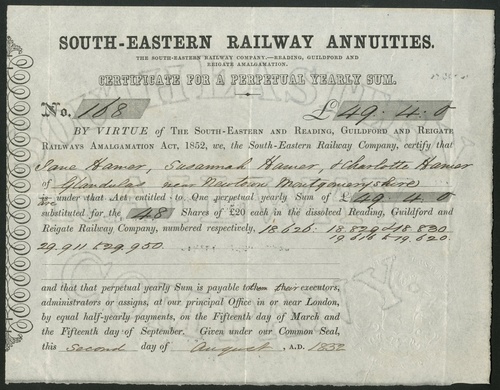 SOUTH-EASTERN RAILWAY ANNUITIES.
THE SOUTH-EASTERN RAILWAY COMPANY.—READING, GUILDFORD AND
REIGATE AMALGAMATION.
CERTIFICATE FOR A PERPETUAL YEARLY SUM.
No. 168 £49.4.0
BY VIRTUE of The South-Eastern and Reading, Guildford and Reigate
Railways Amalgamation Act, 1852, we, the South-Eastern Railway Company, certify that
Jane Hamer, Susannah Hamer, & Charlotte Hamer
of Glandulas near Newtown Montgomeryshire
are under that Act entitled to One perpetual yearly Sum of £49.4.0
substituted for the 48 Shares of £20 each in the dissolved Reading, Guildford and
Reigate Railway Company, numbered respectively, 18.626. 18.829 & 18.830
19.616 & 19.620.
29.911 & 29.950.
and that that perpetual yearly Sum is payable to them their executors,
administrators or assigns, at our principal Office in or near London,
by equal half-yearly payments, on the Fifteenth day of March and
the Fifteenth day of September. Given under our Common Seal,
this second day of August, A.D. 1852